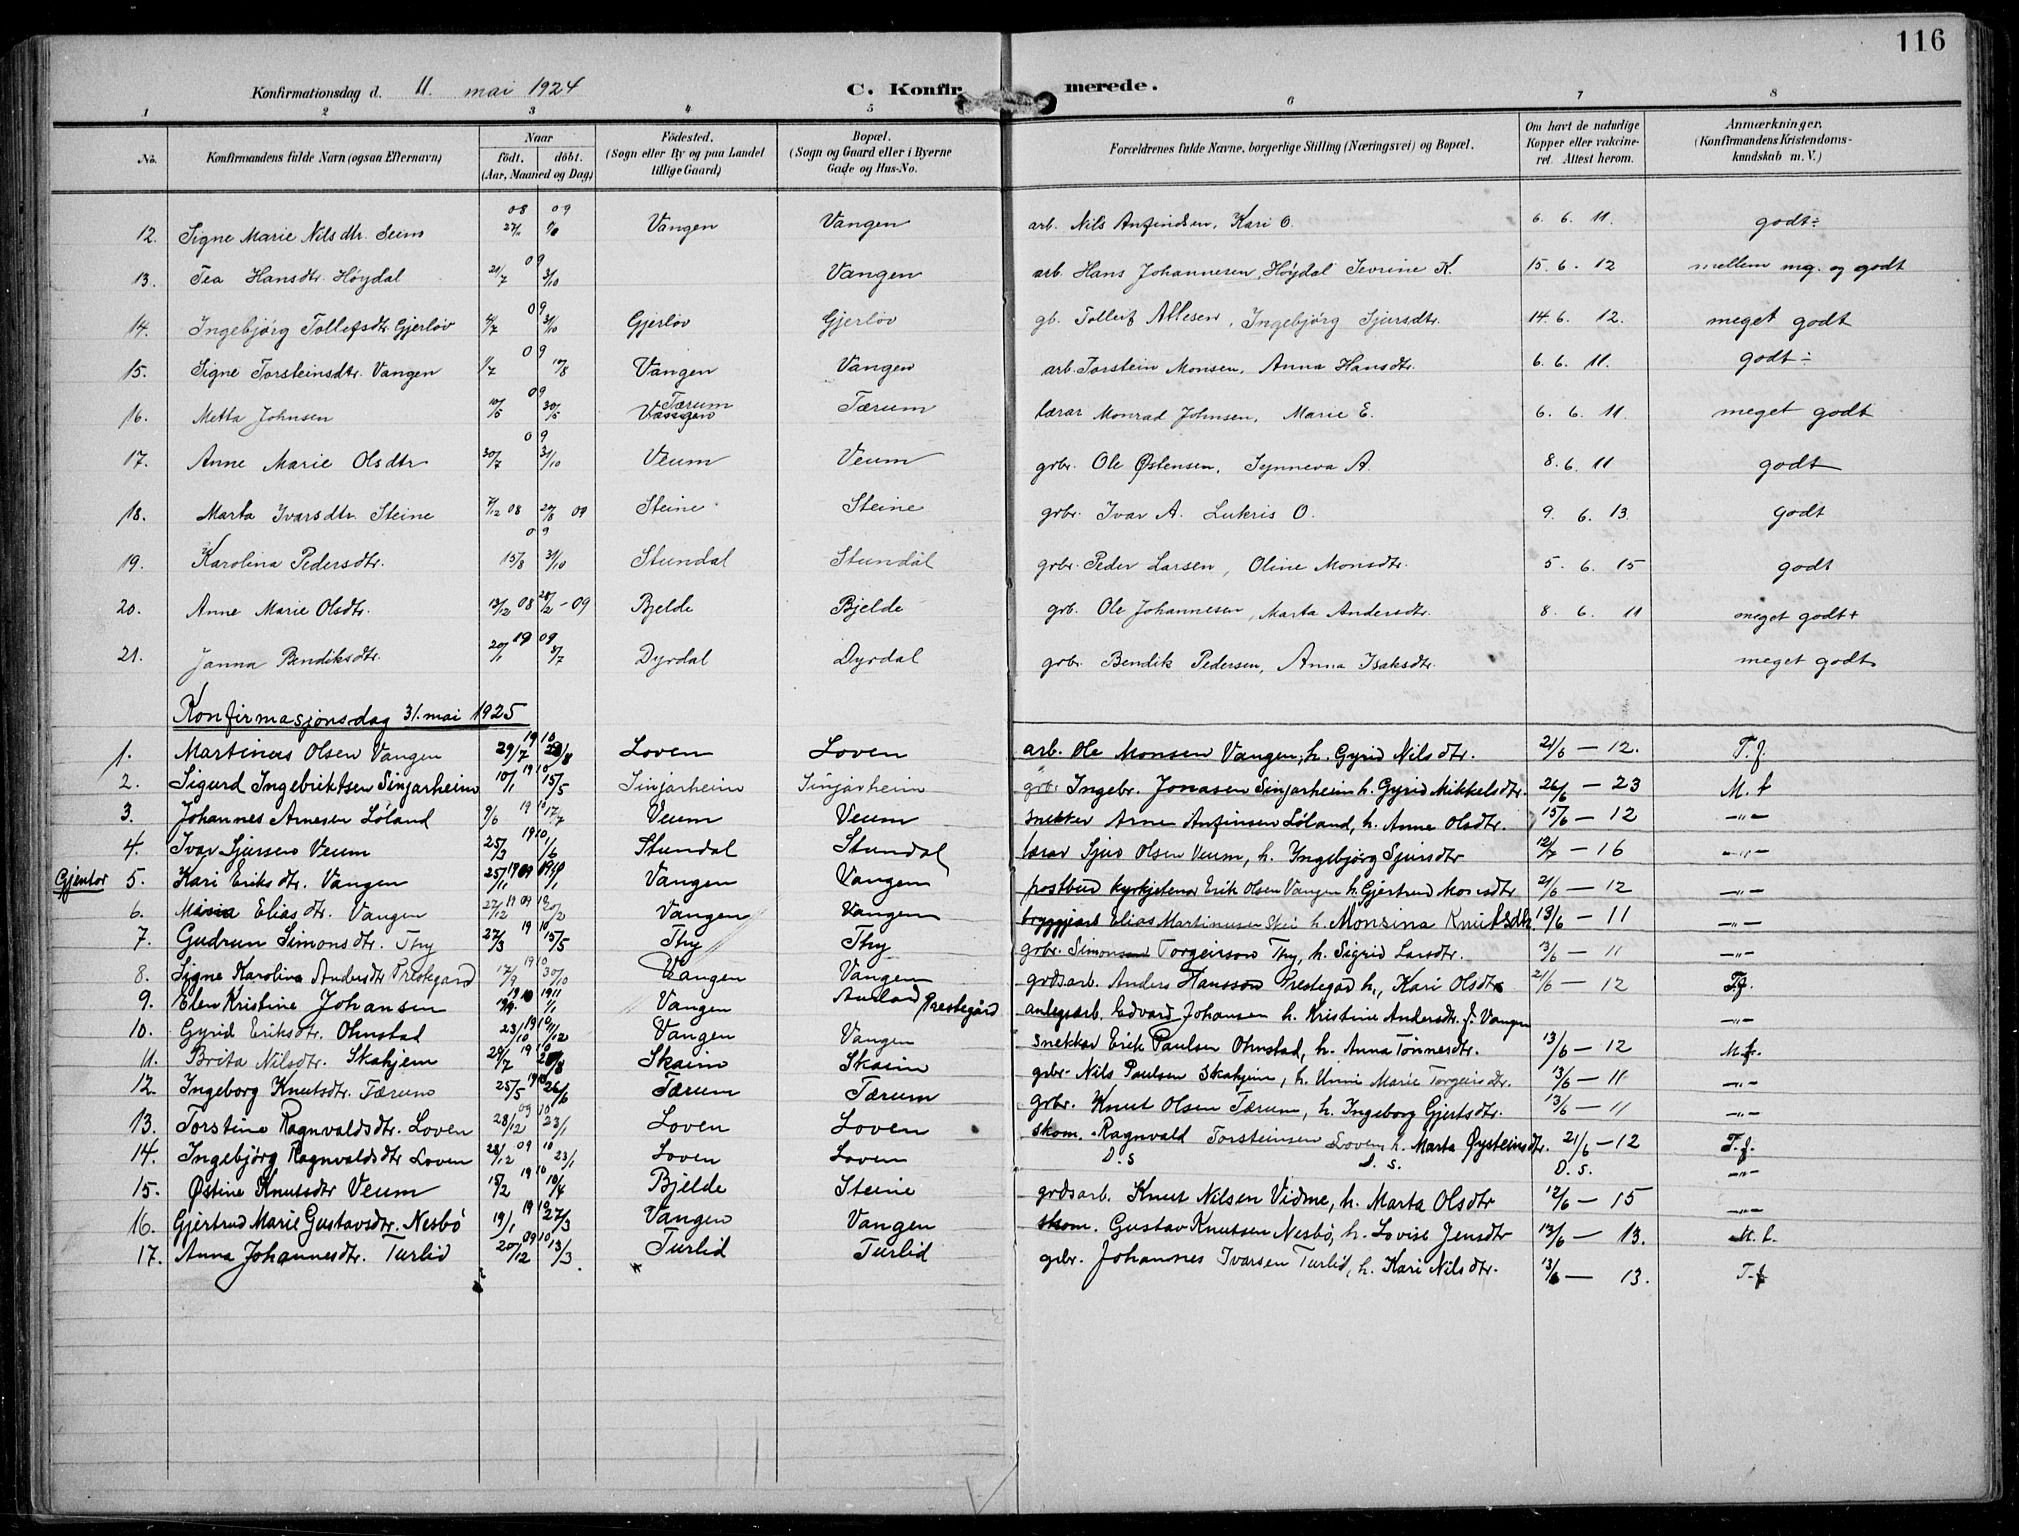 116
Konfirmationsdag d. 11. mai 1924 C. Konfirmerede.
1 2 3 4 5 6 7 8
No. Konfirmandens fulde Navn (ogsaa Efternavn) Naar født. døbt. (Aar, Maaned og Dag) Fødested. (Sogn eller By og paa Landet tillige Gaard) Bopæl. (Sogn og Gaard eller i Byerne Gade og Hus-No. Forældrenes fulde Navne, borgerlige Stilling (Næringsvei) og Bopæl. Om havt de naturlige Kopper eller vakcineret. Attest herom. Anmærkninger. (Konfirmandens Kristendomskundskab m. V.)
12. Signe Marie Nilsdtr. Seim 08 09 Vangen Vangen arb. Nils Anfindsen, Kari O. 6. 6. 11. godt÷
13. Tea Hansdtr. Høydal 21/7 09 3/10 Vangen arb. Hans Johannesen Høydal Sevrine K. 15. 6. 12 mellem mg. og godt
14. Ingebjörg Tollefsdtr. Gjerløv 09 Gjerløv Gjerløv gb. Tollef Allesen, Ingebjörg Sjursdtr. 14. 6. 12. meget godt
15. Signe Torsteinsdtr. Vangen 1/7 09 10/8 Vangen Vangen arb. Torstein Monsen, Anna Hansdtr. 6. 6. 11. godt÷
16. Metta Johnsen 10/5 09 30/5 Tærum Vangen Tærum lærar Monrad Johnsen, Marie E. 6. 6. 11. meget godt
17. Anne Marie Olsdtr 30/7 09 31/10 Veum Veum grbr. Ole Østensen, Synneva A. 8. 6. 11 godt
18. Marta Ivarsdtr. Steine 08 09 Steine Steine grbr. Ivar A. Lukris O. 9. 6. 13. godt
19. Karolina Pedersdtr. 15/8 09 31/10 Stundal Stundal grbr. Peder Larsen, Oline Monsdtr. 5. 6. 15 godt
20. Anne Marie Olsdtr. 13/12 08 28/2 - 09 Bjelde Bjelde grb. Ole Johannesen, Marta Andersdtr. 8. 6. 11 meget godt+
21. Janna Bendiksdtr. 20/1 1909 Dyrdal Dyrdal grbr. Bendik Pedersen, Anna Isaksdtr. meget godt
Konfirmasjonsdag 31. mai 1925
1. Martinus Olsen Vangen 29/7 1910 28/8 Loven Loven arb. Ole Monsen Vangen, h. Gyrid Nilsdtr. 21/6 - 12. T.f.
2. Sigurd Ingebriktsen Sinjarheim 10/1 1910 15/5 Sinjarheim Sinjarheim grbr. Ingebr. Jonasen Sinjarheim h. Gyrid Mikkelsdtr. 26/6 - 23 M.f
3. Johannes Arnesen Løland 9/6 1910 17/7 Veum Veum snekker Arne Anfinsen Løland, h. Anne Olsdtr. 15/6 - 12 -"-
4. Ivar Sjursen Veum 25/3 1910 1/6 Stundal Stundal lærar Sjur Olsen Veum, h. Ingebjørg Sjursdtr 12/7 - 16 -"-
Gjentor 5. Kari Eriksdtr. Vangen 25/11 1909 Vangen Vangen postbud kyrkjetenar Erik Olsen Vangen h. Gjertrud Monsdtr 21/6 - 12 -"-
6. Maria Eliasdtr. Vangen 27/12 1909 20/2 Vangen Vangen bryggjarb. Elias Martinusen Skei h. Monsina Knutsdtr. 13/6 - 11 -"-
7. Gudrun Simonsdtr. Thy 27/3 1910 15/5 Thy Thy grbr. Simon Torgeirson Thy, h. Sigrid Larsdtr. 13/6 - 11 -"-
8. Signe Karolina Andersdtr Prestegard 17/9 1910 30/10 Vangen Vangen grdsarb. Anders Hansson Prestegard h., Kari Olsdtr 21/6 - 12 Tf.
9. Elen Kristine Johansen 1910 1911 1/1 Vangen Aurland Prestegård anlegsarb. Edvard Johansen h. Kristine Andersdtr. f. Vangen -"-
10. Gyrid Eriksdtr. Ohnstad 23/10 1910 11/12 Vangen Vangen snekkar Erik Paulsen Ohnstad, h. Anna Tønnesdtr. 13/6 - 12 M.f.
11. Brita Nilsdtr. Skahjem 29/7 1910 Skaim Skaim grbr. Nils Paulsen Skahjem, h. Unni Marie Torgeirsdtr. 13/6 - 11 -"-
12. Ingeborg Knutsdtr. Tærum 25/5 1910 26/6 Tærum Tærum grbr. Knut Olsen Tærum, h. Ingeborg Gjertsdtr. 13/6 - 11 -"-
13. Torstine Ragnvaldsdtr. Loven 28/12 09 10 23/1 Loven Loven skom. Ragnvald Torsteinsen Loven h. Marta Øysteinsdtr. 21/6 - 12 T.f.
14. Ingebjörg Ragnvaldsdtr Loven 28/12 09 10 23/1 Loven Loven D.S D.S. D.S. -"-
15. Østine Knutsdtr Veum 15/2 1910 10/4 Bjelde Steine grdsarb. Knut Nilsen Vidme, h. Marta Olsdtr 12/6 - 15 -"-
16. Gjertrud Marie Gustavsdtr. Nesbø 19/1 1910 27/3 Vangen Vangen skom. Gustav Knutsen Nesbø, h. Lovise Jensdtr 13/6 - 13. M.f.
17. Anna Johannesdtr. Turlid 20/12 09 10 13/3 Turlid Turlid grbr. Johannes Ivarsen Turlid, h. Kari Nilsdtr. 13/6 - 13. T.f